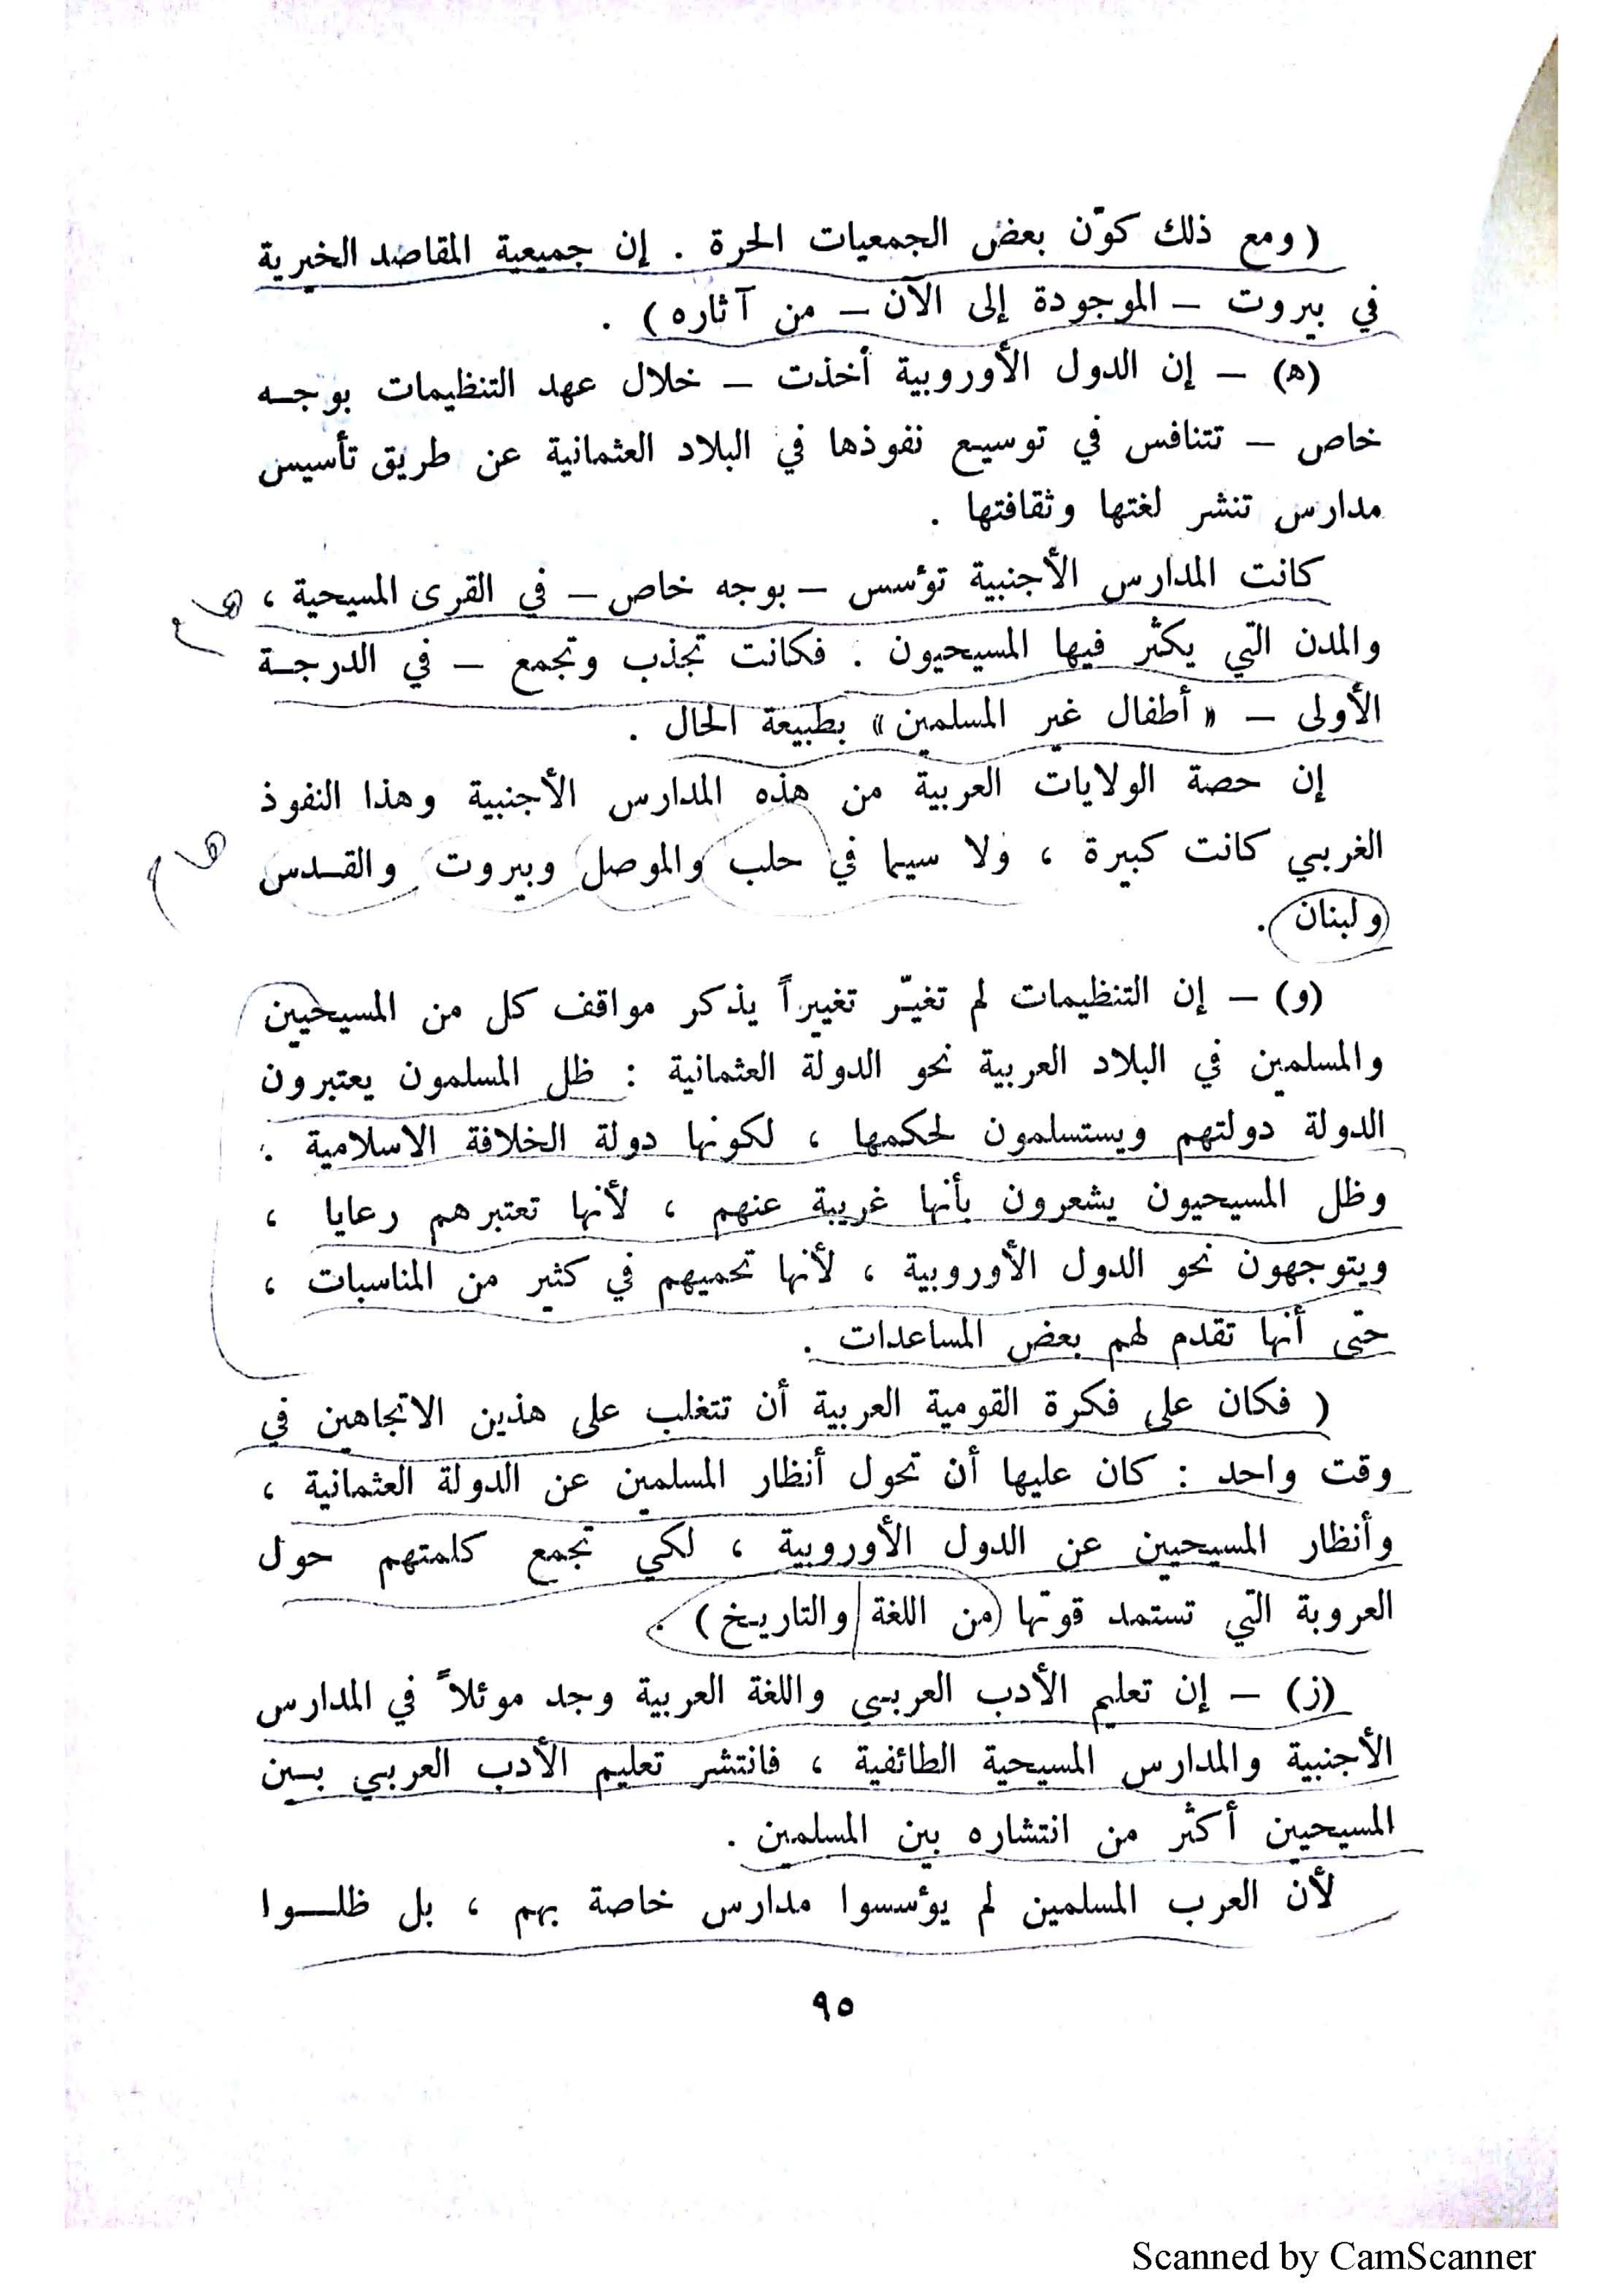 (ومع ذلك كوّن بعض الجمعيات الحرة . إن جميعية المقاصد الخيرية
في بيروت – الموجودة إلى الآن – من آثاره) .
(ه) – إن الدول الأوروبية أخذت – خلال عهد التنظيمات بوجـه
خاص – تتنافس في توسيع نفوذها في البلاد العثمانية عن طريق تأسيس
مدارس تنشر لغتها وثقافتها .
كانت المدارس الأجنبية تؤسس – بوجه خاص – في القرى المسيحية ،
هام
والمدن التي يكثر فيها المسيحيون . فكانت تجذب وتجمع – في الدرجـة
الأولى – « أطفال غير المسلمين » بطبيعة الحال .
إن حصة الولايات العربية من هذه المدارس الأجنبية وهذا النفوذ
الغربي كانت كبيرة ، ولا سيما في حلب والموصل وبيروت والقـدس
هام
ولبنان .
(و) – إن التنظيمات لم تغيّر تغييراً يذكر مواقف كل من المسيحيين
والمسلمين في البلاد العربية نحو الدولة العثمانية : ظل المسلمون يعتبرون
الدولة دولتهم ويستسلمون لحكمها ، لكونها دولة الخلافة الاسلامية .
وظل المسيحيون يشعرون بأنها غريبة عنهم ، لأنها تعتبرهم رعايا ،
ويتوجهون نحو الدول الأوروبية ، لأنها تحميهم في كثير من المناسبات ،
حتى أنها تقدم لهم بعض المساعدات .
( فكان على فكرة القومية العربية أن تتغلب على هذين الاتجاهين في
وقت واحد : كان عليها أن تحول أنظار المسلمين عن الدولة العثمانية ،
وأنظار المسيحيين عن الدول الأوروبية ، لكي تجمع كلمتهم حول
العروبة التي تستمد قوتها (من اللغة والتاريخ) .
(ز) – إن تعليم الأدب العربي واللغة العربية وجد موئلاً في المدارس
الأجنبية والمدارس المسيحية الطائفية ، فانتشر تعليم الأدب العربي بـين
المسيحيين أكثر من انتشاره بين المسلمين .
لأن العرب المسلمين لم يؤسسوا مدارس خاصة بهم ، بل ظلـوا
٩٥
Scanned by CamScanner